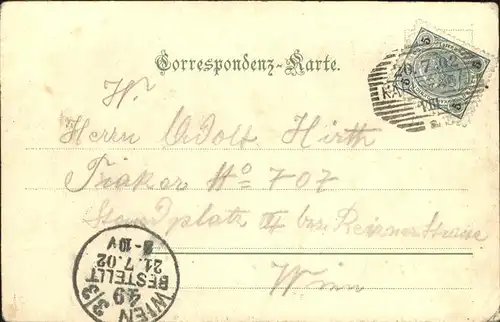 Correspondenz-Karte.
20.7.02
W.
Herrn Adolf Hirth
Fiaker No 707
Standplatz III bez. Reisnerstrasse
Wien
WIEN 3/3
49
BESTELLT
21.7.02
8-10V